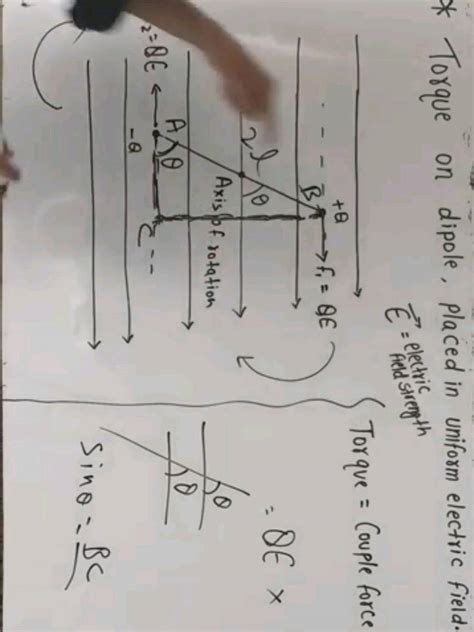 * Torque on dipole, placed in uniform electric field.
E = electric
field strength
+Q
B
f₁ = QE
2l
θ
Axis of rotation
A
θ
-Q
₂ = QE
C
Torque = Couple force
= QE ×
θ
θ
Sinθ = BC